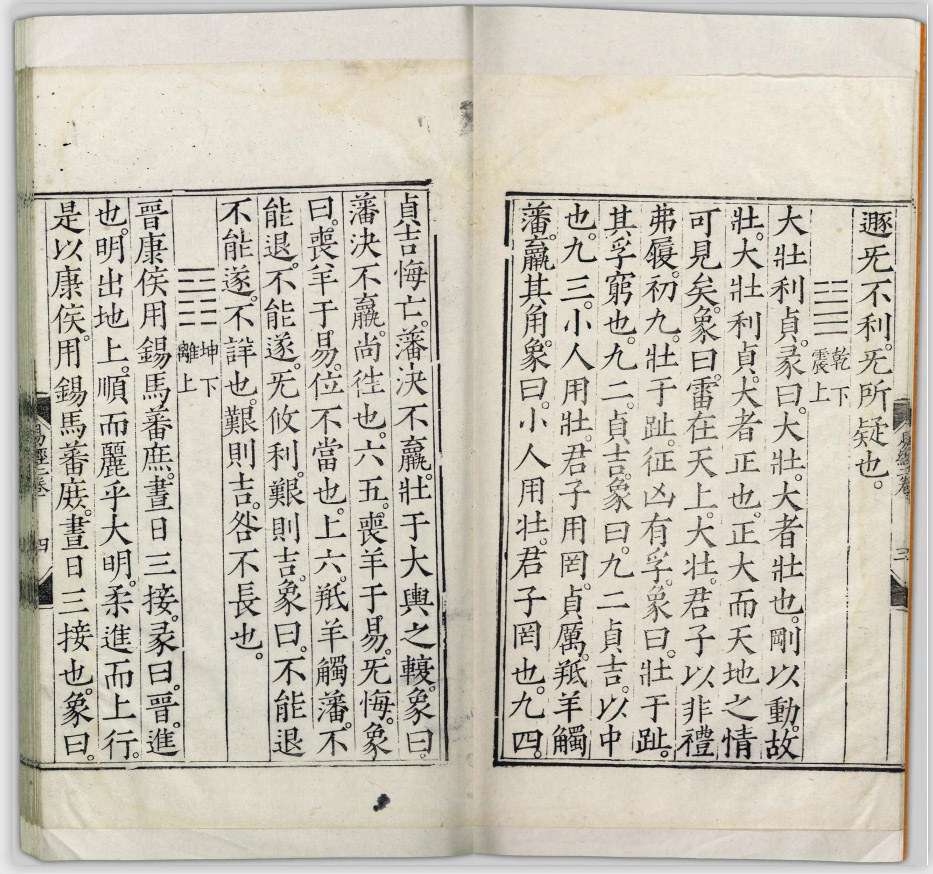 遯旡不利。旡所疑也。
乾下
震上
大壯利貞。彖曰。大壯。大者壯也。剛以動。故
壯。大壯利貞。大者正也。正大而天地之情
可見矣。象曰。雷在天上。大壯。君子以非禮
弗履。初九。壯于趾。征凶有孚。象曰。壯于趾。
其孚窮也。九二。貞吉。象曰。九二貞吉。以中
也。九三。小人用壯。君子用罔。貞厲。羝羊觸
藩。羸其角。象曰。小人用壯。君子罔也。九四。
易經上卷 三
貞吉悔亡。藩決不羸。壯于大輿之輹。象曰。
藩決不羸。尚往也。六五。喪羊于易。旡悔。象
曰。喪羊于易。位不當也。上六。羝羊觸藩。不
能退。不能遂。旡攸利。艱則吉。象曰。不能退
不能遂。不詳也。艱則吉。咎不長也。
坤下
離上
晉康侯用錫馬蕃庶。晝日三接。彖曰。晉。進
也。明出地上。順而麗乎大明。柔進而上行。
是以康侯。用錫馬蕃庶。晝日三接也。象曰。
易經上卷 四